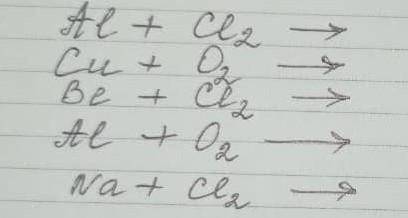 Al + Cl₂ →
Cu + O₂ →
Be + Cl₂ →
Al + O₂ →
Na + Cl₂ →